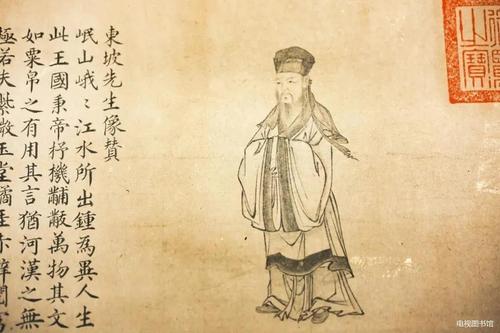 東坡先生像贊
岷山峨〻江水所出鍾為異人生
此王國秉帝杼機黼黻萬物其文
如粟帛之有用其言猶河漢之無
極若夫紫微玉堂
电视图书馆